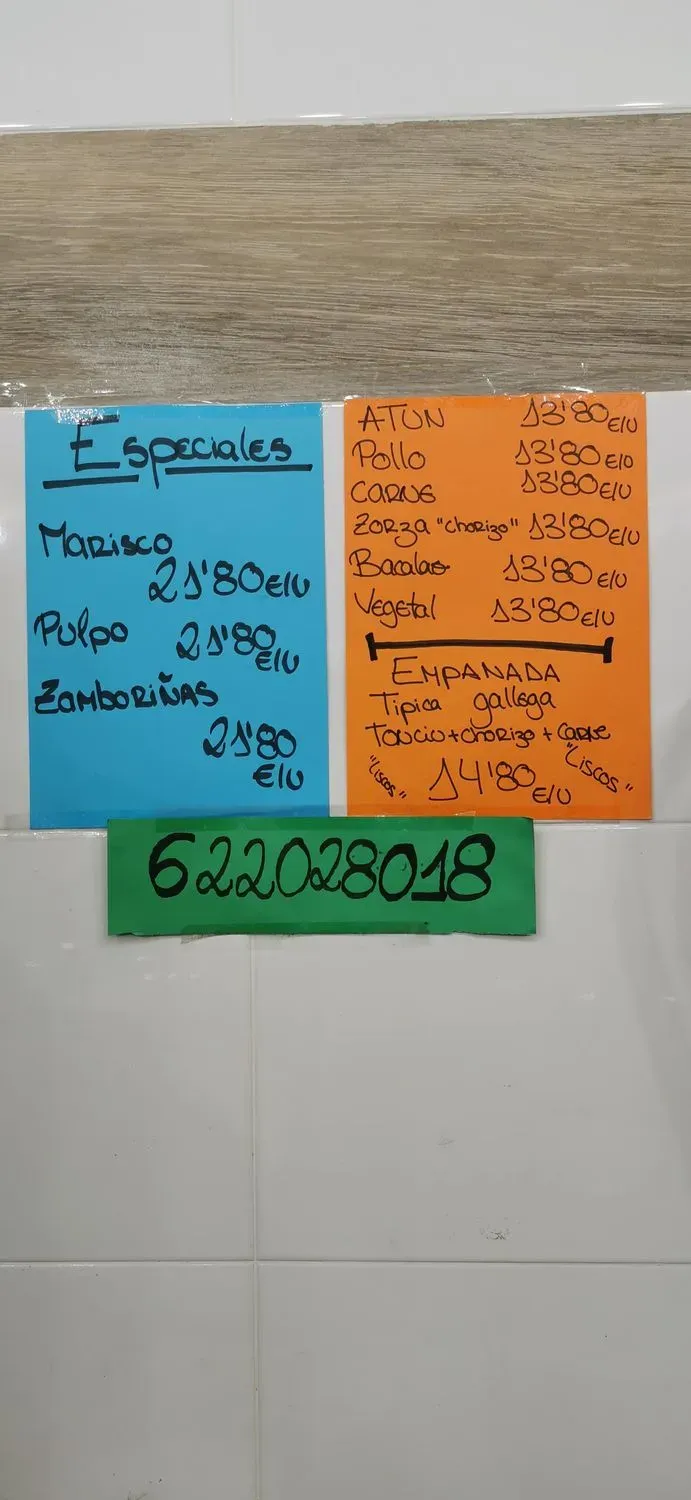 Especiales
Marisco
21'80 €/U
Pulpo 21'80 €/U
Zamboriñas
21'80
€/U
ATUN 13'80 €/U
Pollo 13'80 €/U
CARNE 13'80 €/U
Zorza "chorizo" 13'80 €/U
Bacalao 13'80 €/U
Vegetal 13'80 €/U
EMPANADA
Tipica gallega
Touciu+chorizo+carne
"Liscos" 14'80 €/U "Liscos"
622028018